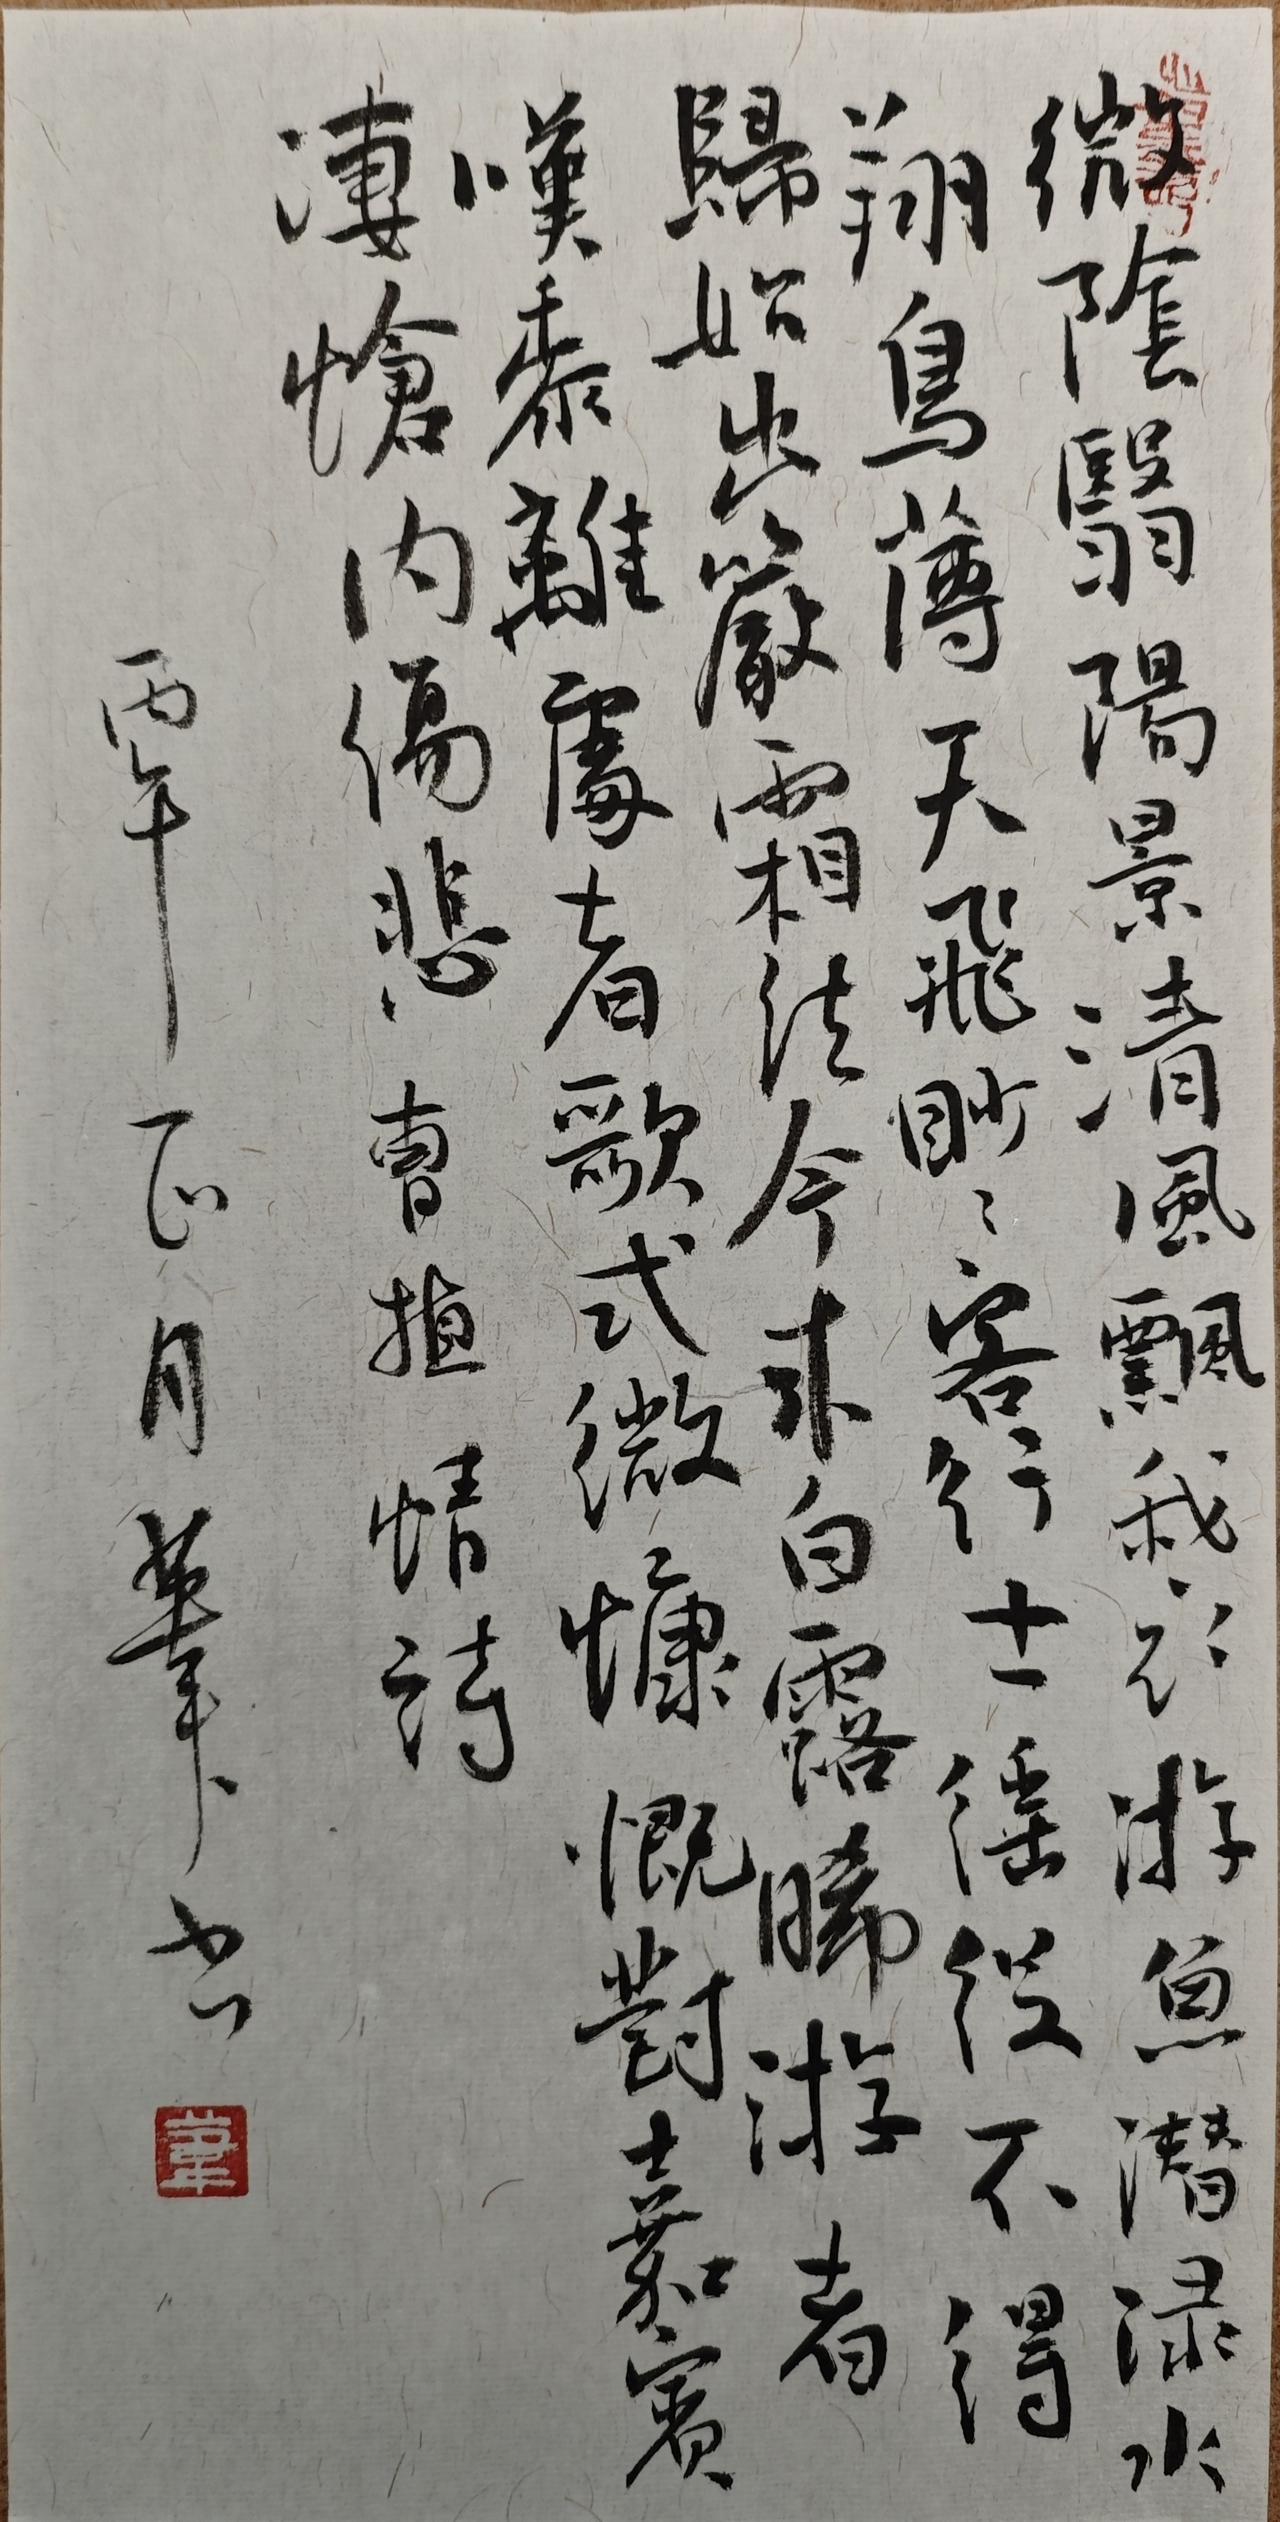 微陰翳陽景清風飄我衣游魚潛渌水
翔鳥薄天飛眇〻客行士徭役不得
歸始出嚴霜結今来白露晞游者
嘆黍離處者歌式微慷慨對嘉賓
凄愴内傷悲 曹植情詩
丙午正月 书